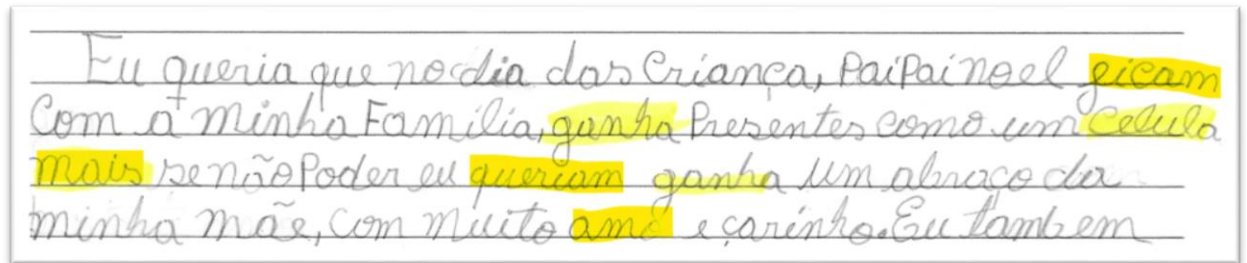 Eu queria que no dia das Criança, PaiPai noel eicam
Com a minha Família, ganha Presentes como um Celula
mais se não Poder eu queriam ganha um abraço da
minha mãe, com muito amo e carinho. Eu tambem